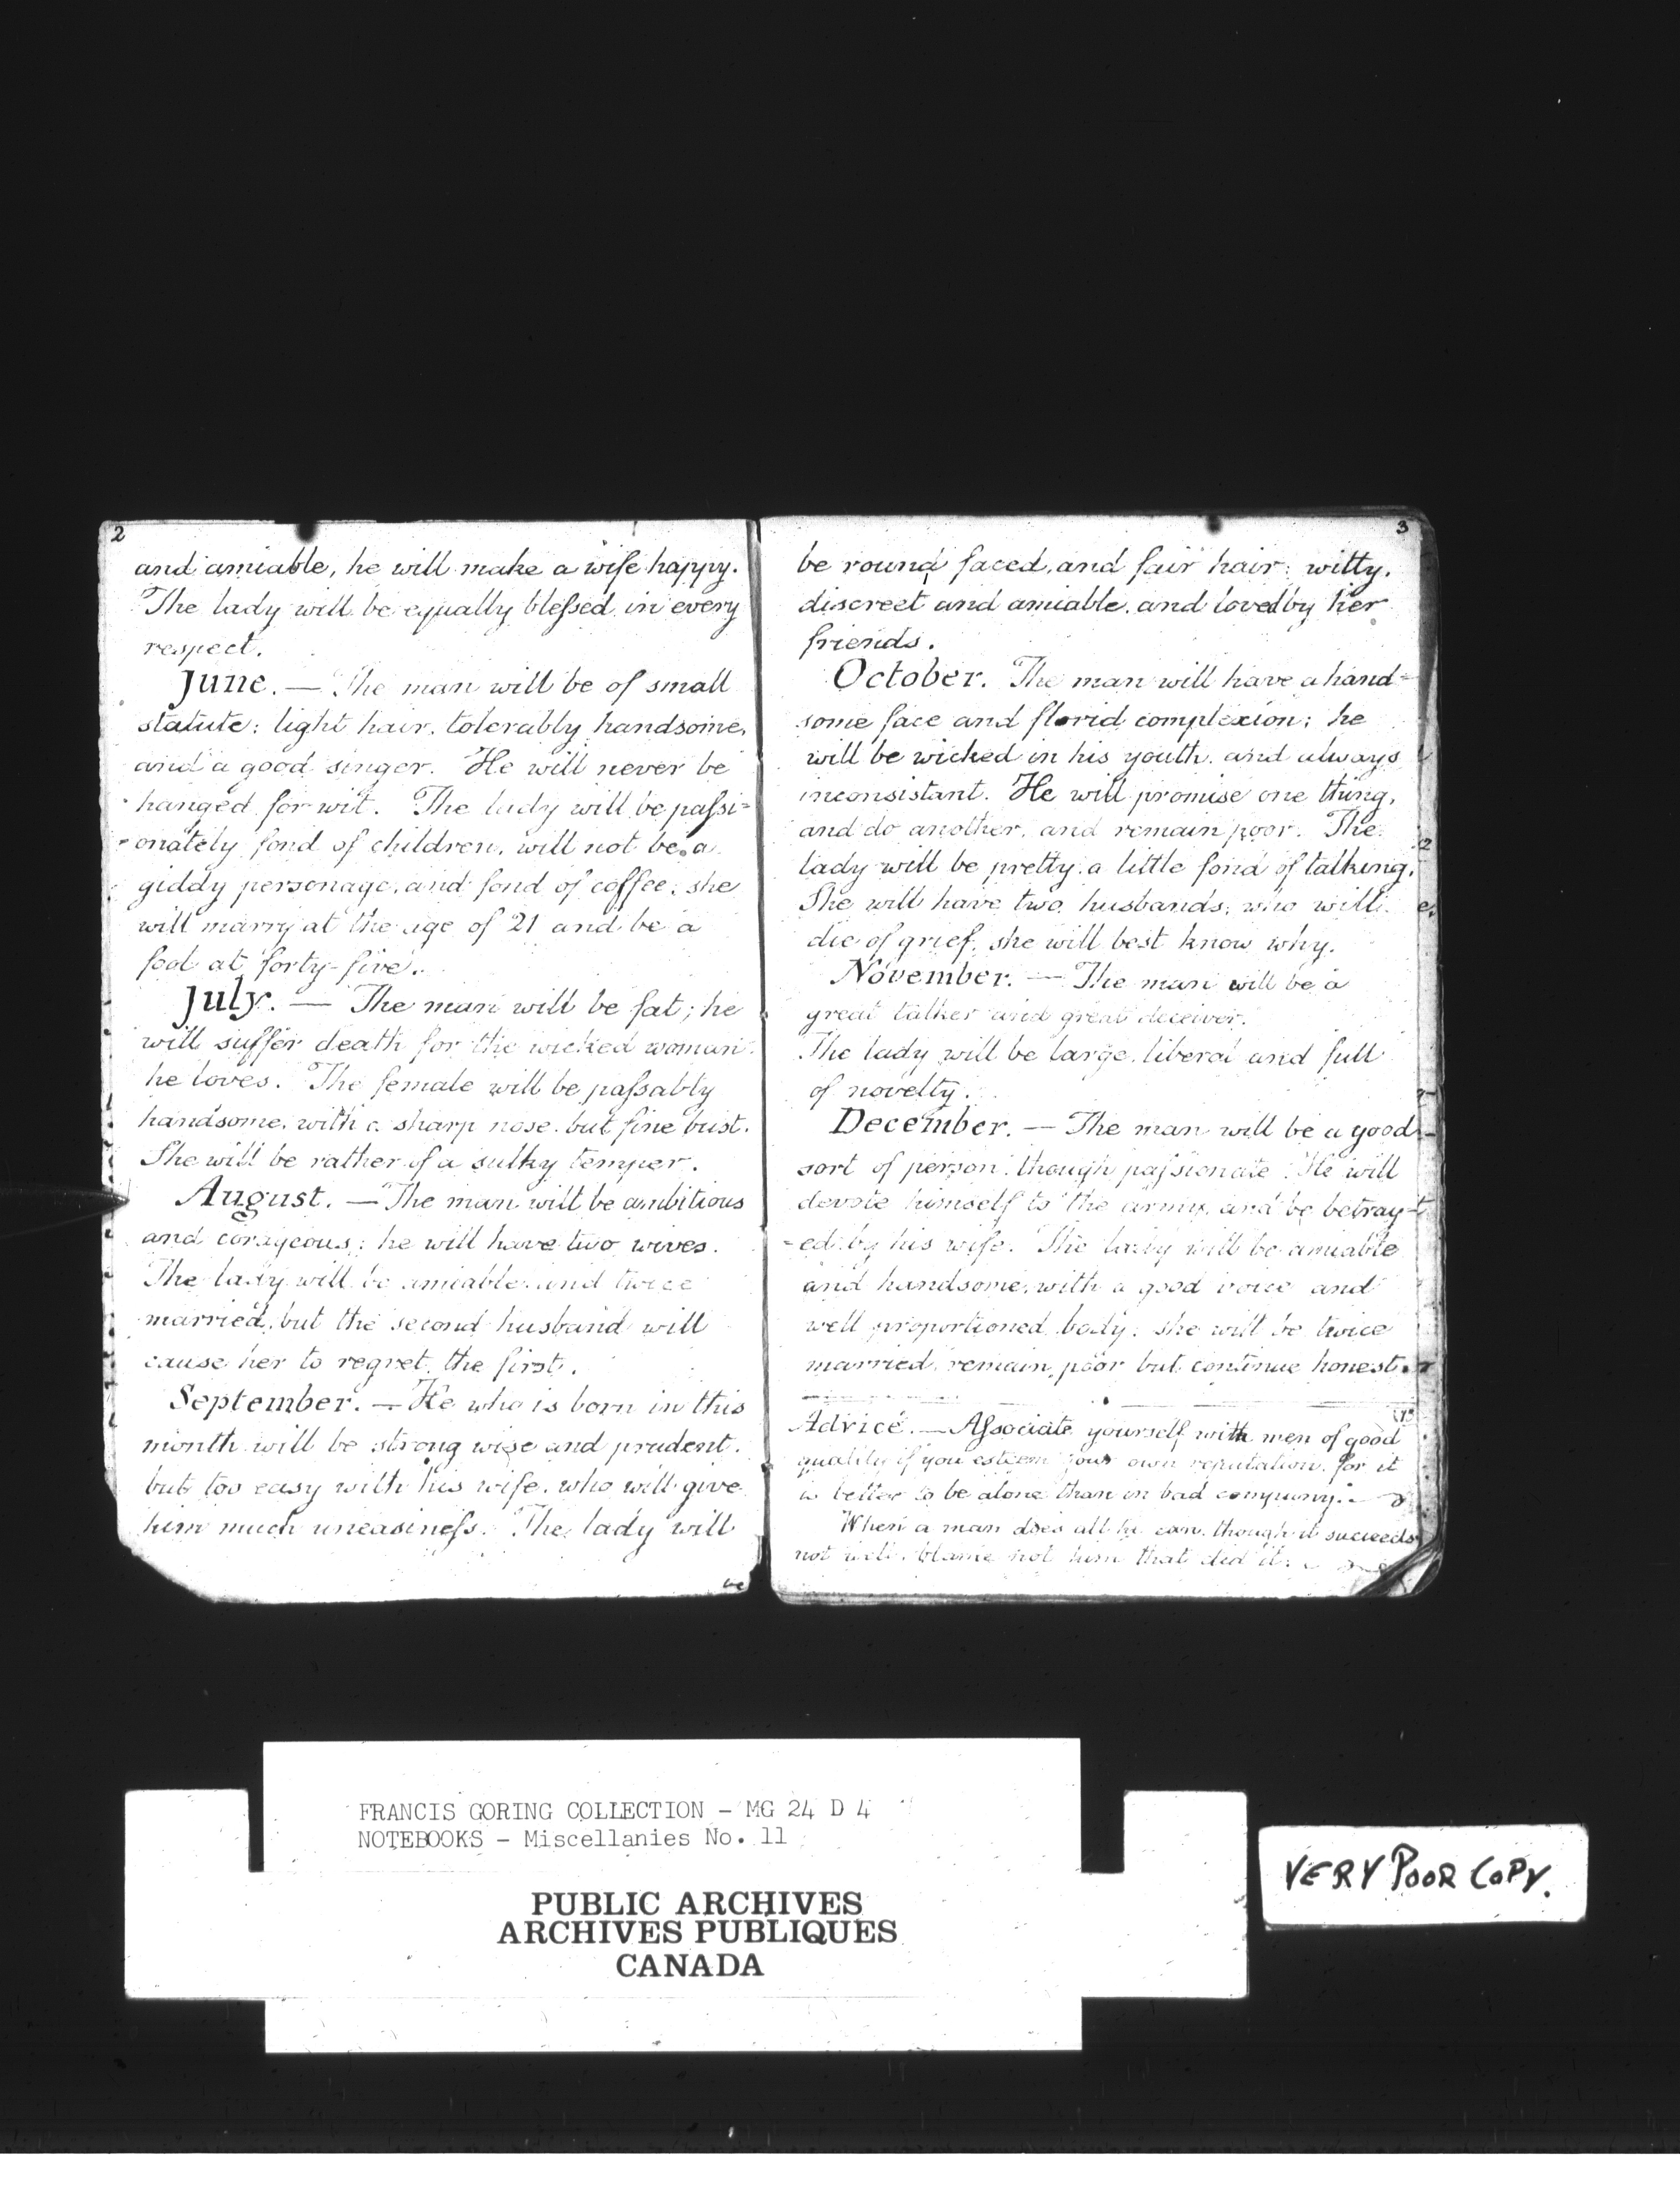 2
and amiable, he will make a wife happy.
The lady will be equally blessed in every
respect.
June. — The man will be of small
statute: light hair. tolerably handsome,
and a good singer. He will never be
hanged for wit. The lady will be passi=
-onately fond of children. will not be a
giddy personage, and fond of coffee; she
will marry at the age of 21 and be a
fool at forty-five.
July. — The man will be fat; he
will suffer death for the wicked woman
he loves. The female will be passably
handsome, with a sharp nose. but fine bust.
She will be rather of a sulky temper.
August. — The man will be ambitious
and corageous; he will have two wives.
The lady will be amiable and twice
married, but the second husband will
cause her to regret the first.
September. — He who is born in this
month will be strong wise and prudent.
but too easy with his wife. who will give
him much uneasiness. The lady will
be
3
be round faced, and fair hair: witty.
discreet and amiable. and loved by her
friends.
October. The man will have a hand=
some face and florid complexion; he
will be wicked in his youth. and always
inconsistant. He will promise one thing,
and do another, and remain poor. The
lady will be pretty. a little fond of talking.
She will have two husbands; who will
die of grief, she will best know why.
November. — The man will be a
great talker and great deceiver.
The lady will be large, liberal and full
of novelty.
December. — The man will be a good
sort of person. though passionate. He will
devote himself to the army and be betray-
-ed by his wife. The lady will be amiable
and handsome, with a good voice and
well proportioned body; she will be twice
married, remain poor but continue honest.
Advice. — Associate yourself with men of good
quality if you esteem your own reputation. for it
is better to be alone than in bad company.
When a man does all he can. though it succeeds
not well. blame not him that did it.
FRANCIS GORING COLLECTION - MG 24 D 4
NOTEBOOKS - Miscellanies No. 11
PUBLIC ARCHIVES
ARCHIVES PUBLIQUES
CANADA
VERY POOR COPY.